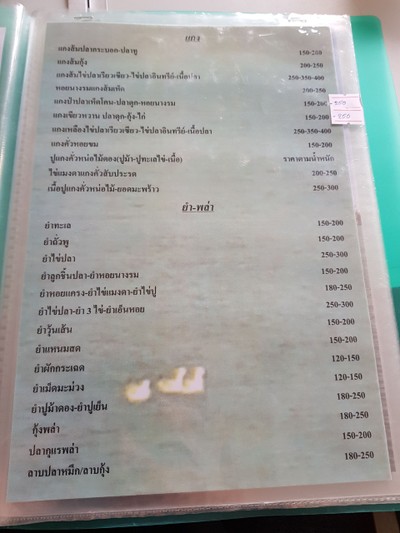 แกง
แกงส้มปลากระบอก-ปลาทู 150-200
แกงส้มกุ้ง 200-250
แกงส้มไข่ปลาเรียวเซียว-ไข่ปลาอินทรีย์-เนื้อปลา 250-350-400
หอยนางรมแกงส้มเห็ด 200-250
แกงป่าปลาเห็ดโคน-ปลาดุก-หอยนางรม 150-200
แกงเขียวหวาน ปลาดุก-กุ้ง-ไก่ 150-200
แกงเหลืองไข่ปลาเรียวเซียว-ไข่ปลาอินทรีย์-เนื้อปลา 250-350-400
แกงคั่วหอยขม 150-200
ปูแกงคั่วหน่อไม้ดอง(ปูม้า-ปูทะเลไข่-เนื้อ) ราคาตามน้ำหนัก
ไข่แมงดาแกงคั่วสับประรด 200-250
เนื้อปูแกงคั่วหน่อไม้-ยอดมะพร้าว 250-300
ยำ-พล่า
ยำทะเล 150-200
ยำถั่วพู 150-200
ยำไข่ปลา 250-300
ยำลูกชิ้นปลา-ยำหอยนางรม 150-200
ยำหอยแครง-ยำไข่แมงดา-ยำไข่ปู 180-250
ยำไข่ปลา-ยำ 3 ไข่-ยำเอ็นหอย 250-300
ยำวุ้นเส้น 150-200
ยำแหนมสด 150-200
ยำผักกระเฉด 120-150
ยำเม็ดมะม่วง 120-150
ยำปูม้าดอง-ยำปูเย็น 180-250
กุ้งพล่า 180-250
ปลากุแรพล่า 150-200
ลาบปลาหมึก/ลาบกุ้ง 180-250